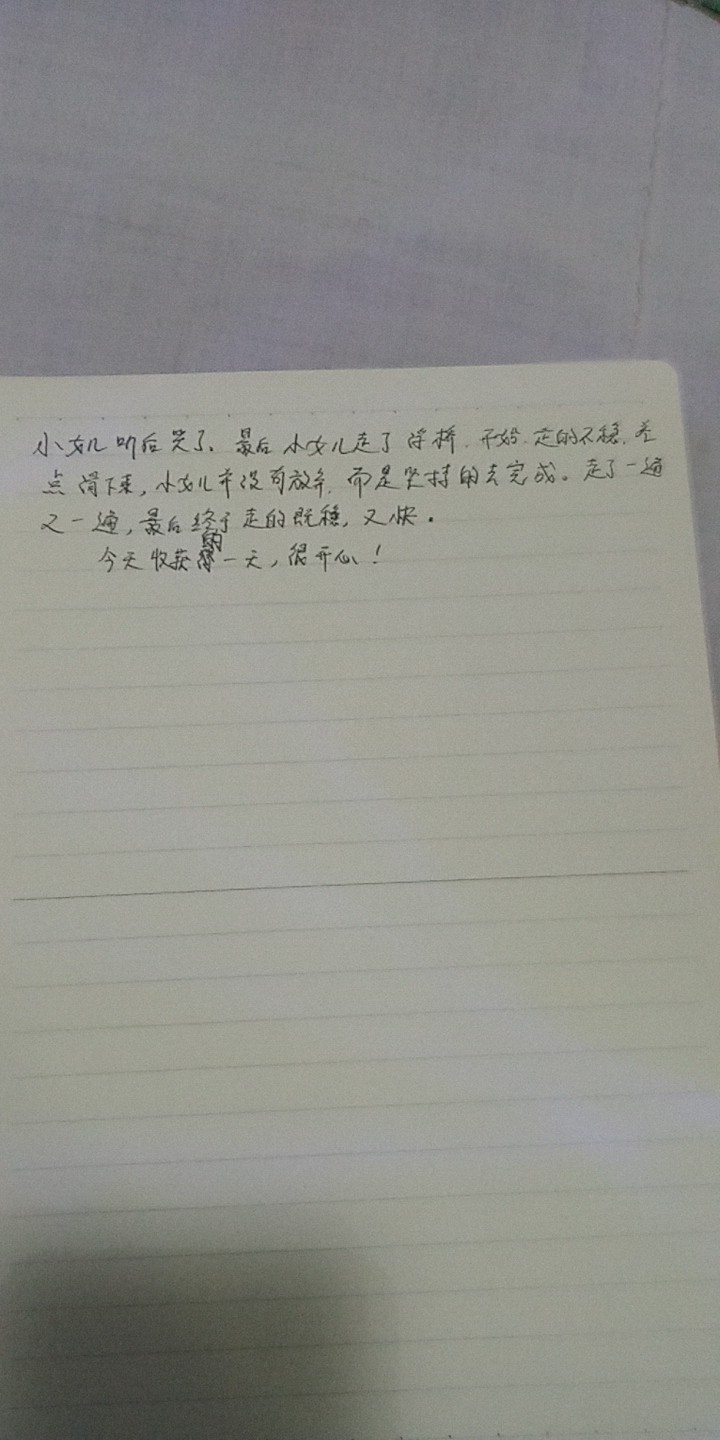 小女儿听后笑了、最后小女儿走了浮桥.开始.走的不稳.差
点滑下来,小女儿并没有放弃.而是坚持的去完成。走了一遍
又一遍,最后终于走的既稳,又快。
今天收获的一天,很开心!